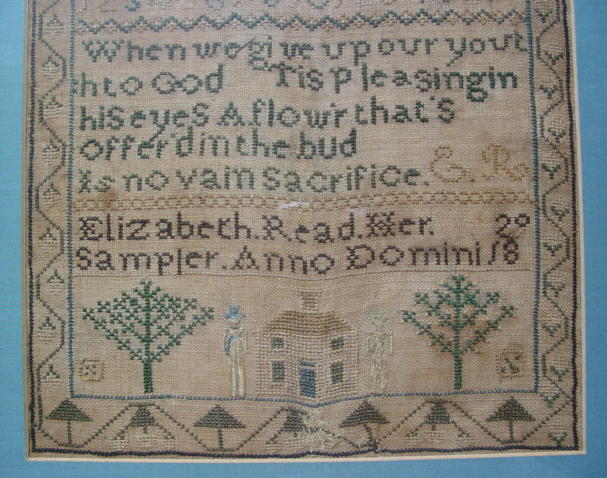 123
When we give up our yout
h to God Tis pleasing in
his eyes A flow'r that's
offer'd in the bud
Is no vain sacrifice. E. Re
Elizabeth. Read. Her. 20
Sampler. Anno Domini 18